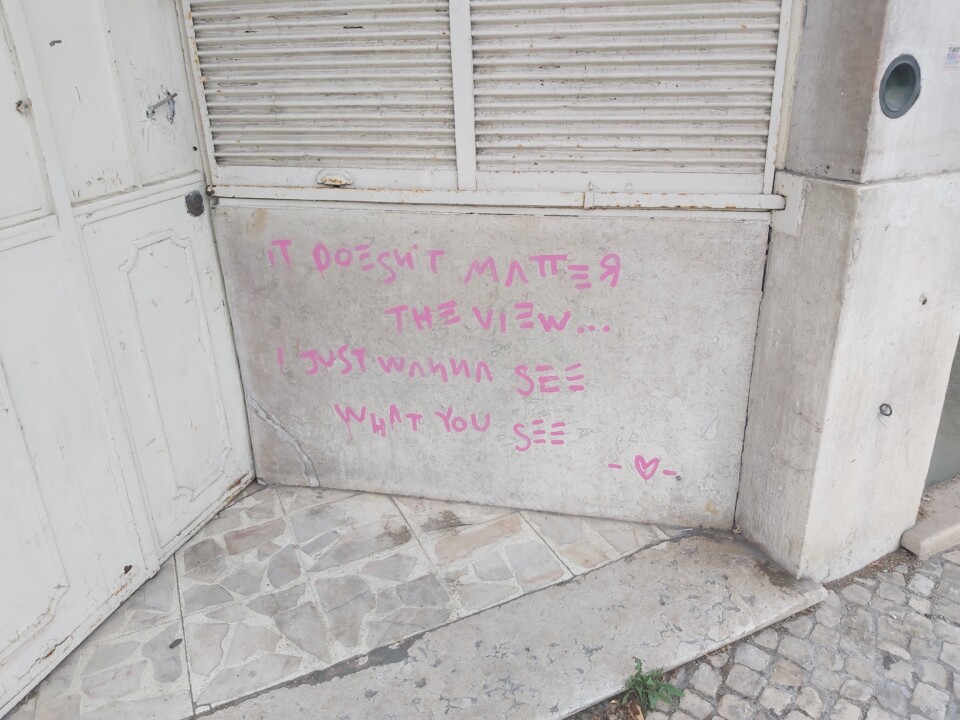 IT DOESN'T MATTER
THE VIEW...
I JUST WANNA SEE
WHAT YOU SEE
-♡-